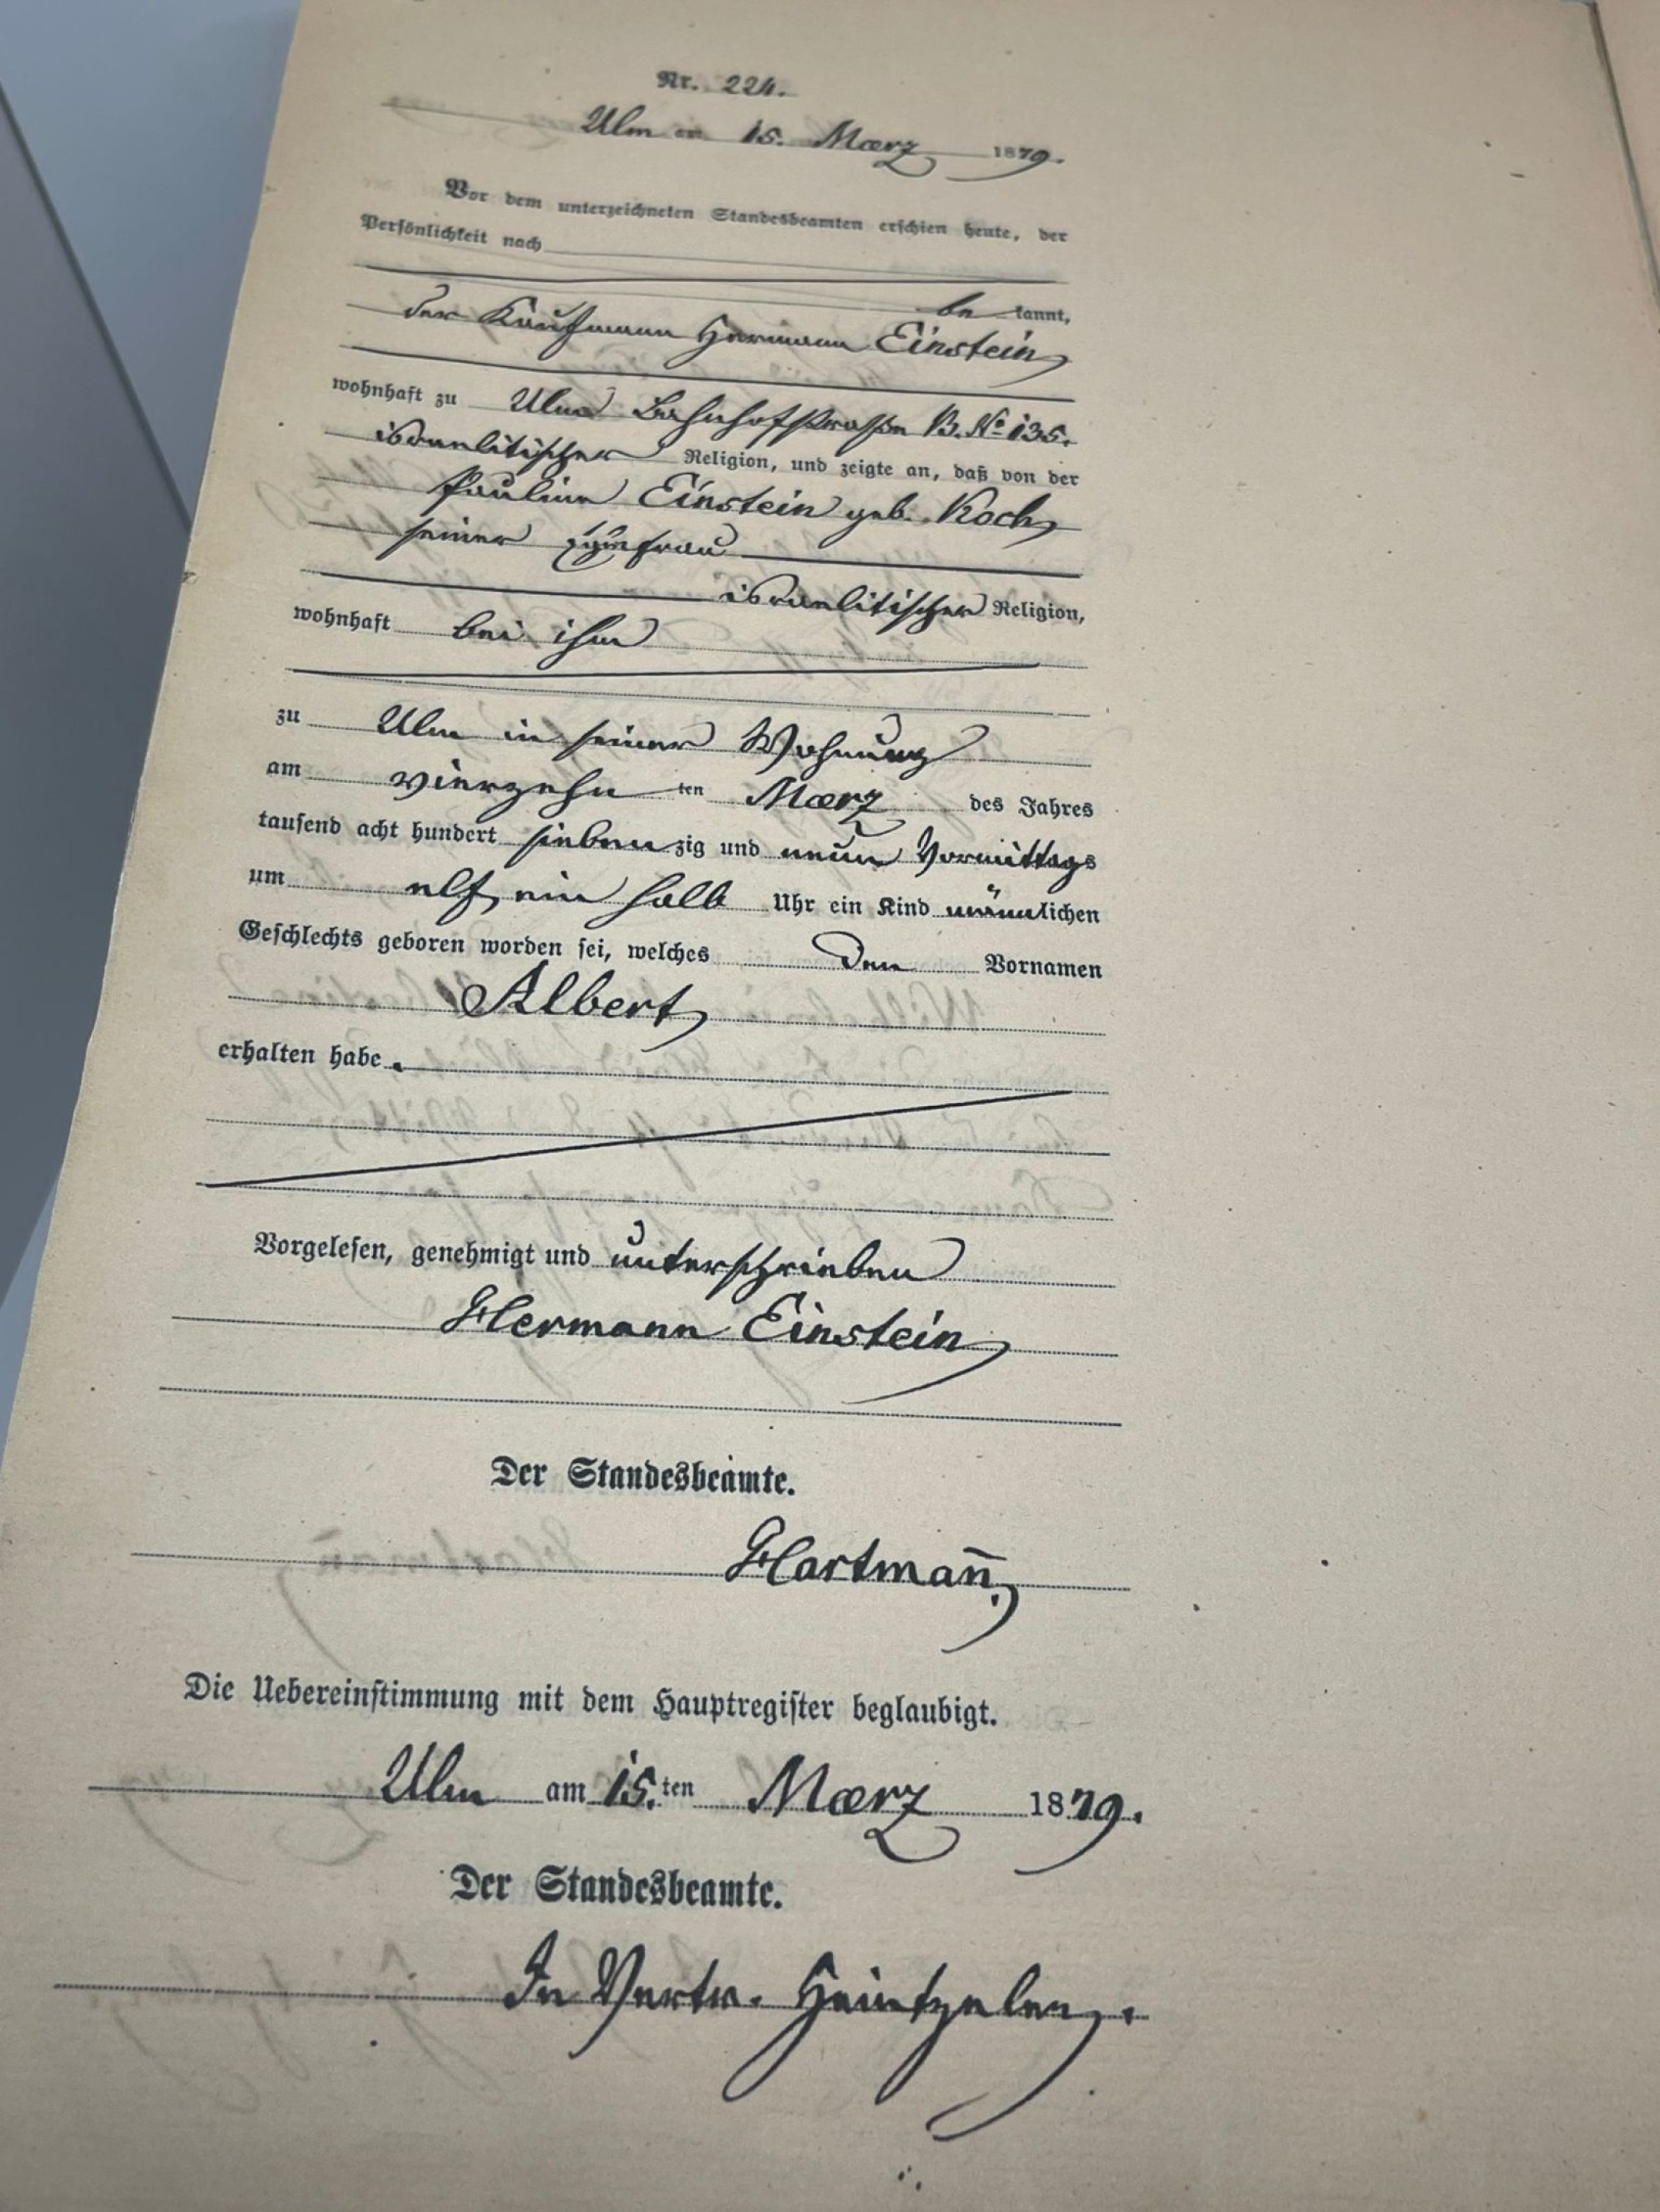 Nr. 224.
Ulm am 15. Maerz 1879.
Vor dem unterzeichneten Standesbeamten erschien heute, der
Persönlichkeit nach
be kannt,
der Kaufmann Hermann Einstein,
wohnhaft zu Ulm Bahnhofstraße B. No 135.
israelitischer Religion, und zeigte an, daß von der
Pauline Einstein geb. Koch,
seiner Ehefrau
israelitischer Religion,
wohnhaft bei ihm
zu Ulm in seiner Wohnung
am vierzehn ten Maerz des Jahres
tausend acht hundert sieben zig und neun Vormittags
um elf ein halb Uhr ein Kind männlichen
Geschlechts geboren worden sei, welches den Vornamen
Albert
erhalten habe.
Vorgelesen, genehmigt und unterschrieben
Hermann Einstein
Der Standesbeamte.
Hartmañ.
Die Uebereinstimmung mit dem Hauptregister beglaubigt.
Ulm am 15.ten Maerz 1879.
Der Standesbeamte.
In Vertr.